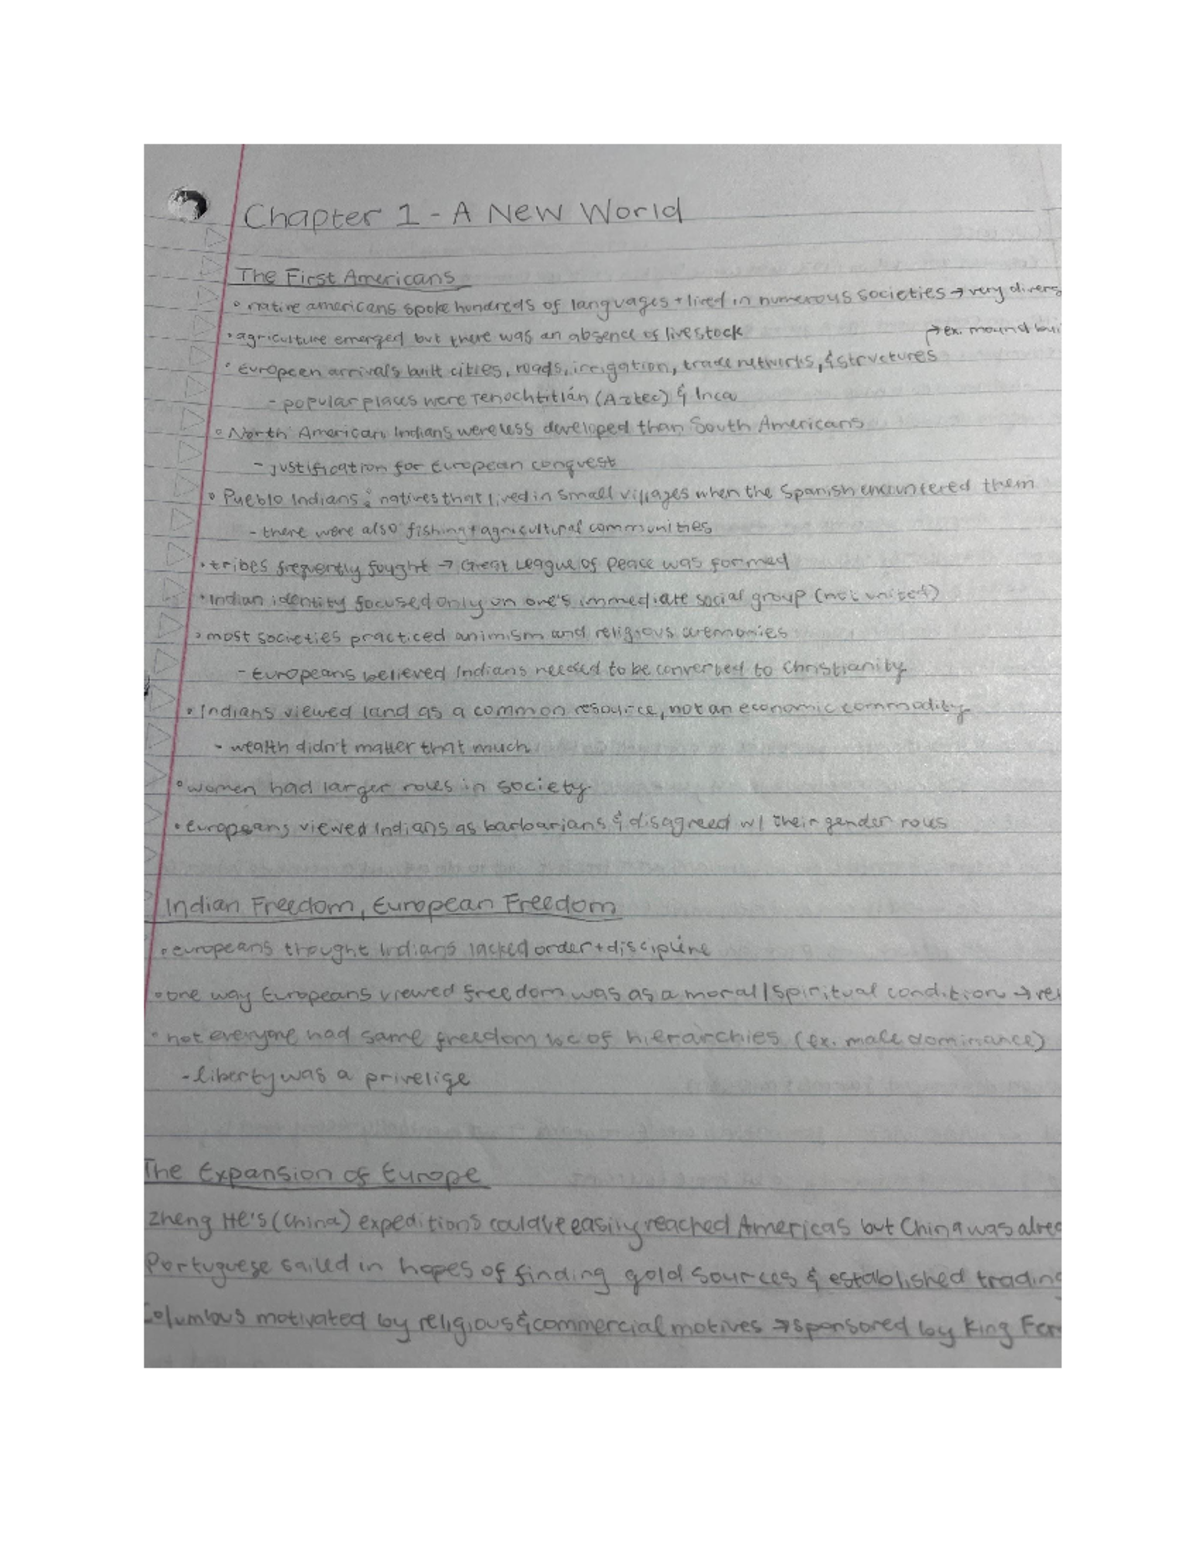 Chapter 1 - A New World
The First Americans
• native americans spoke hundreds of languages + lived in numerous societies → very divers
• agriculture emerged but there was an absence of livestock
→ ex. mound
• European arrivals built cities, roads, irrigation, trade networks, & structures
- popular places were Tenochtitlán (Aztec) & Inca
• North American Indians were less developed than South Americans
- justification for European conquest
• Pueblo Indians: natives that lived in small villages when the Spanish encountered them
- there were also fishing + agricultural communities
• tribes frequently fought → Great League of Peace was formed
• Indian identity focused only on one's immediate social group (not united)
• most societies practiced animism and religious ceremonies
- Europeans believed Indians needed to be converted to Christianity
• Indians viewed land as a common resource, not an economic commodity
- wealth didn't matter that much
• women had larger roles in society
• europeans viewed Indians as barbarians & disagreed w/ their gender roles
Indian Freedom, European Freedom
• europeans thought Indians lacked order + discipline
• one way Europeans viewed freedom was as a moral/spiritual condition →
• not everyone had same freedom bc of hierarchies (ex. male dominance)
- liberty was a privelige
The Expansion of Europe
Zheng He's (China) expeditions could've easily reached Americas but China was alrea
Portuguese sailed in hopes of finding gold sources & established trading
Columbus motivated by religious & commercial motives → sponsored by King Fer